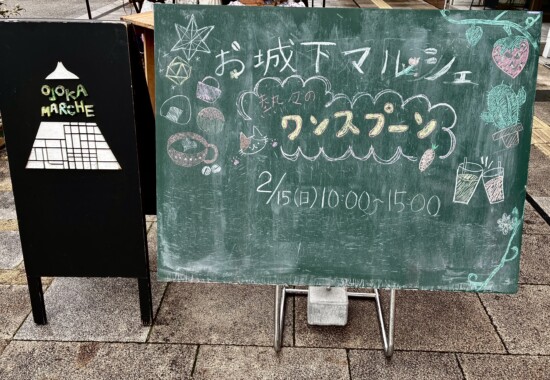 OJOKA
MARCHE
お城下マルシェ
ワンスプーン
2/15(日)10:00~15:00